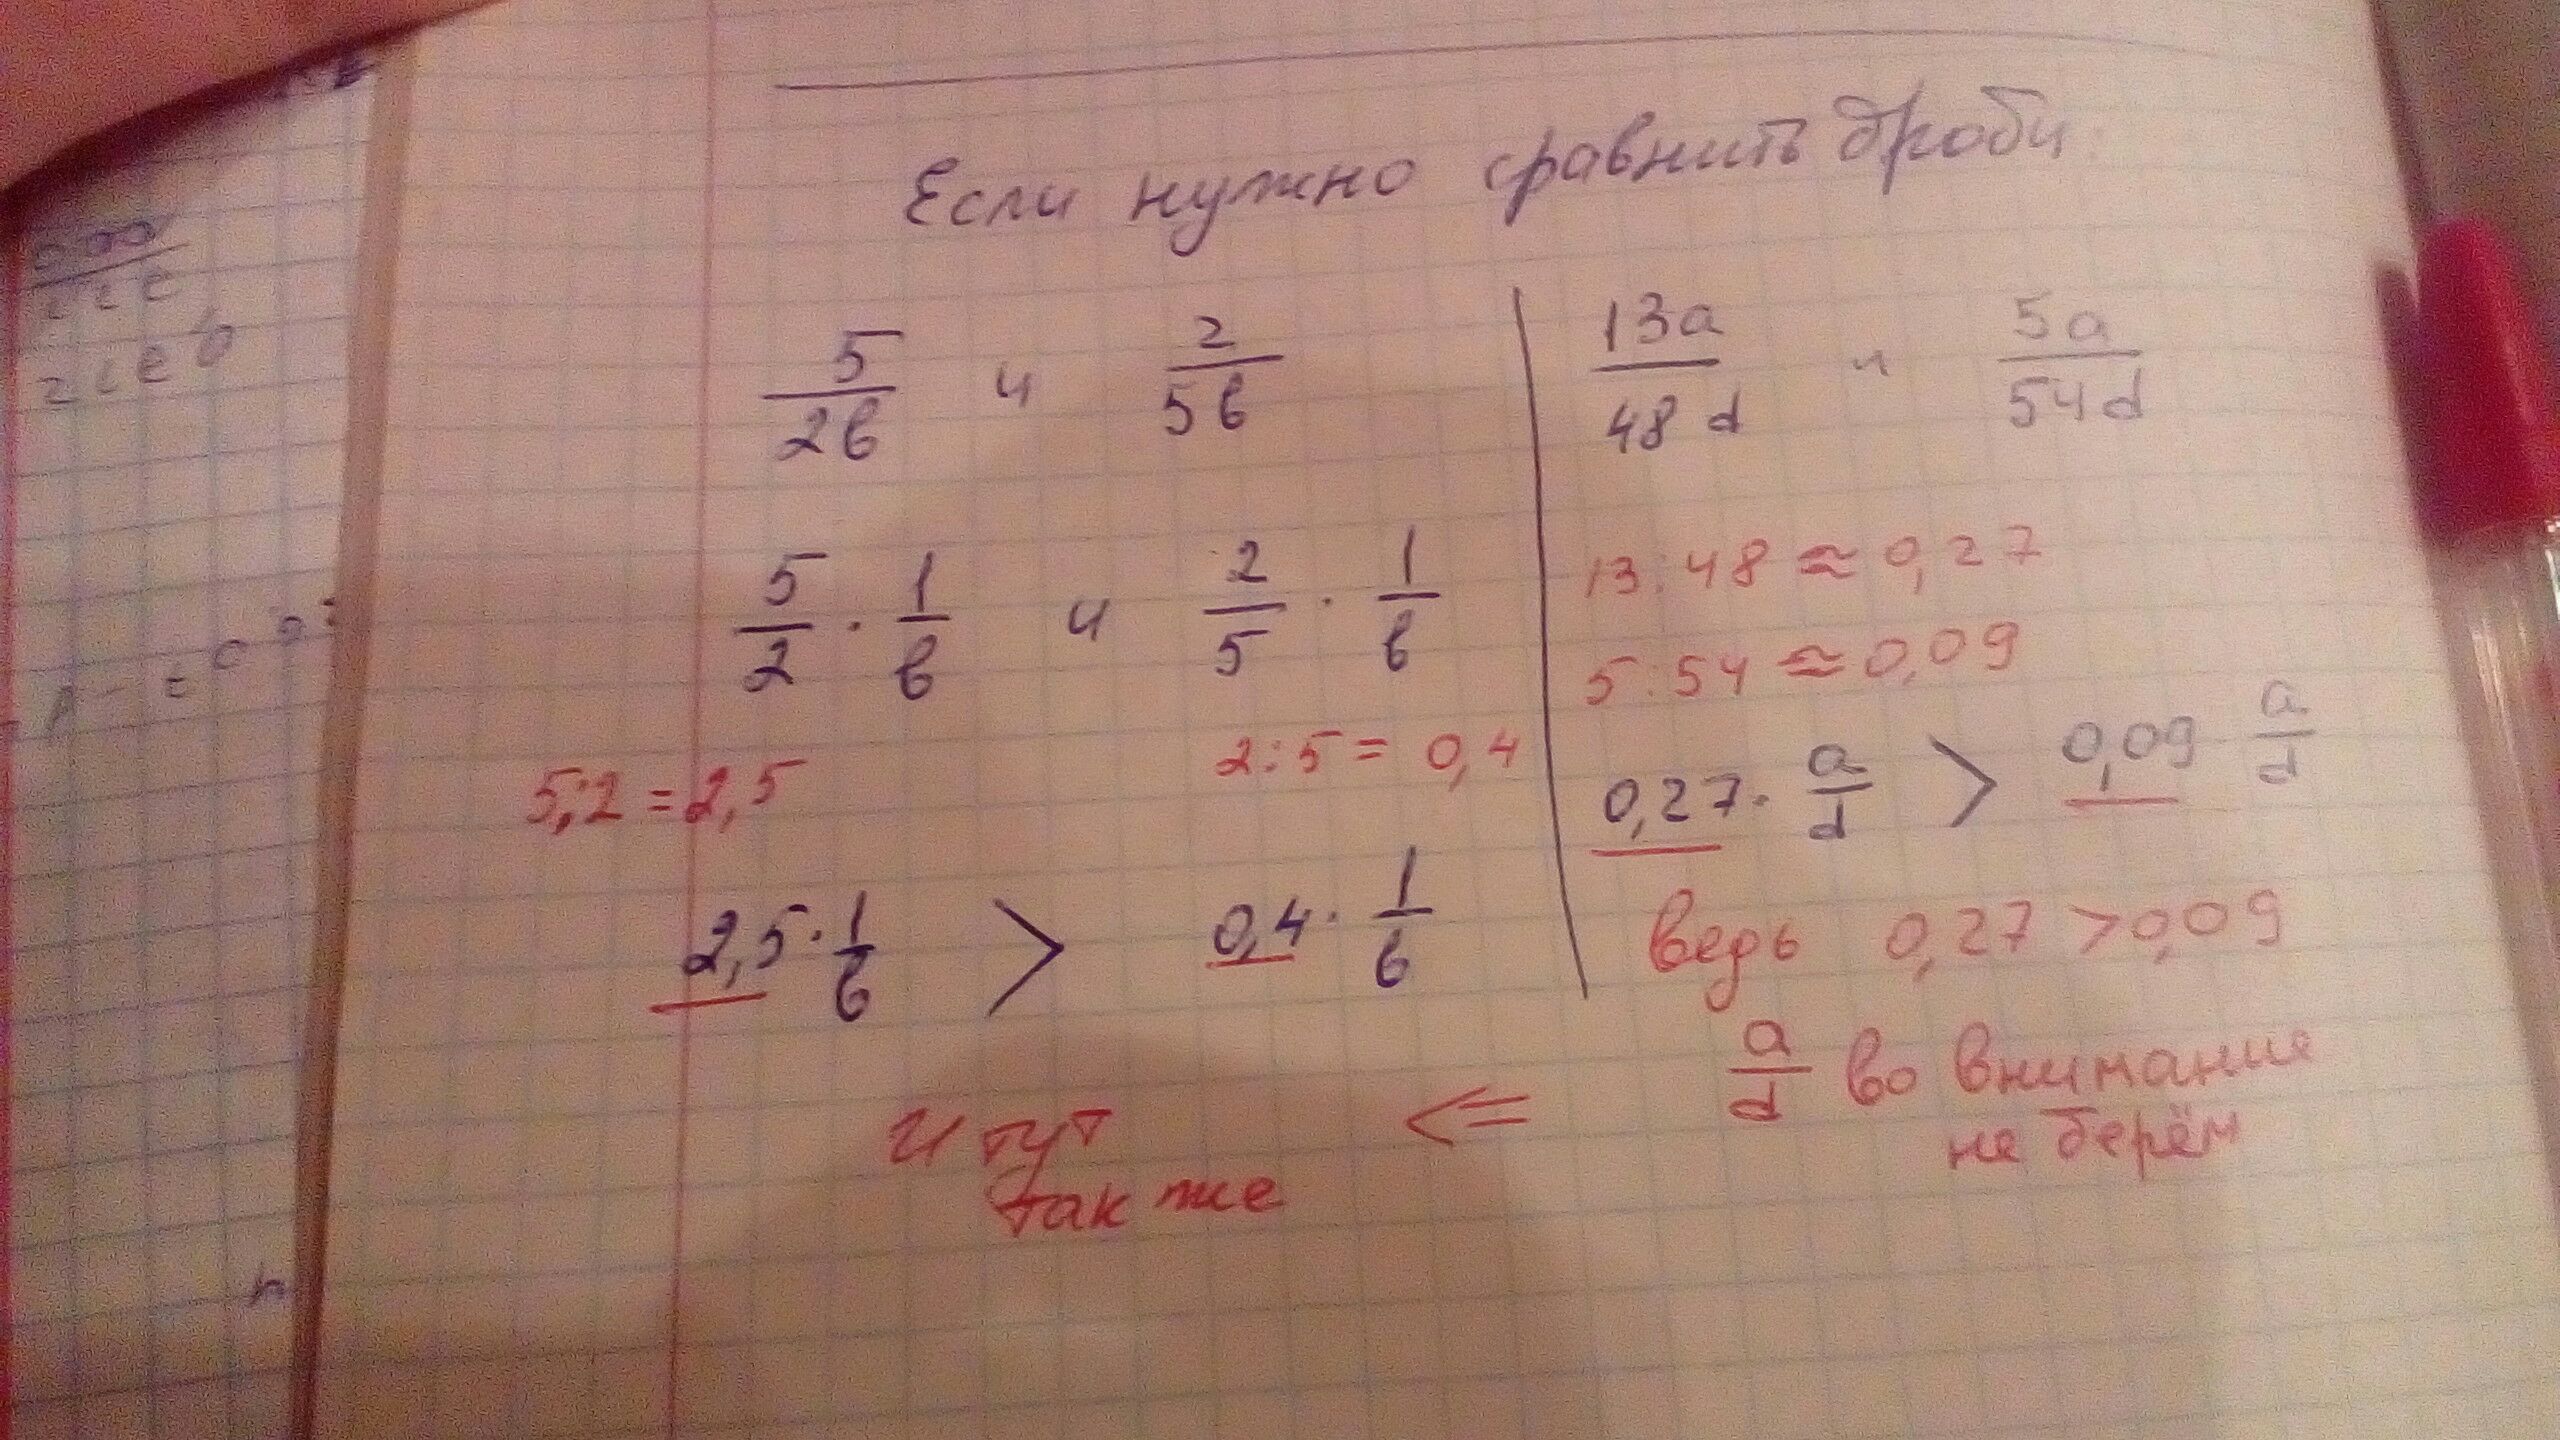 Если нужно сравнить дроби:
5/2в и 2/5в
5/2 · 1/в и 2/5 · 1/в
5:2 = 2,5 2:5 = 0,4
2,5 · 1/в > 0,4 · 1/в
И тут
так же
13a/48d и 5a/54d
13:48 ≈ 0,27
5:54 ≈ 0,09
0,27 · a/d > 0,09 a/d
ведь 0,27 > 0,09
<= a/d во внимание
не берём